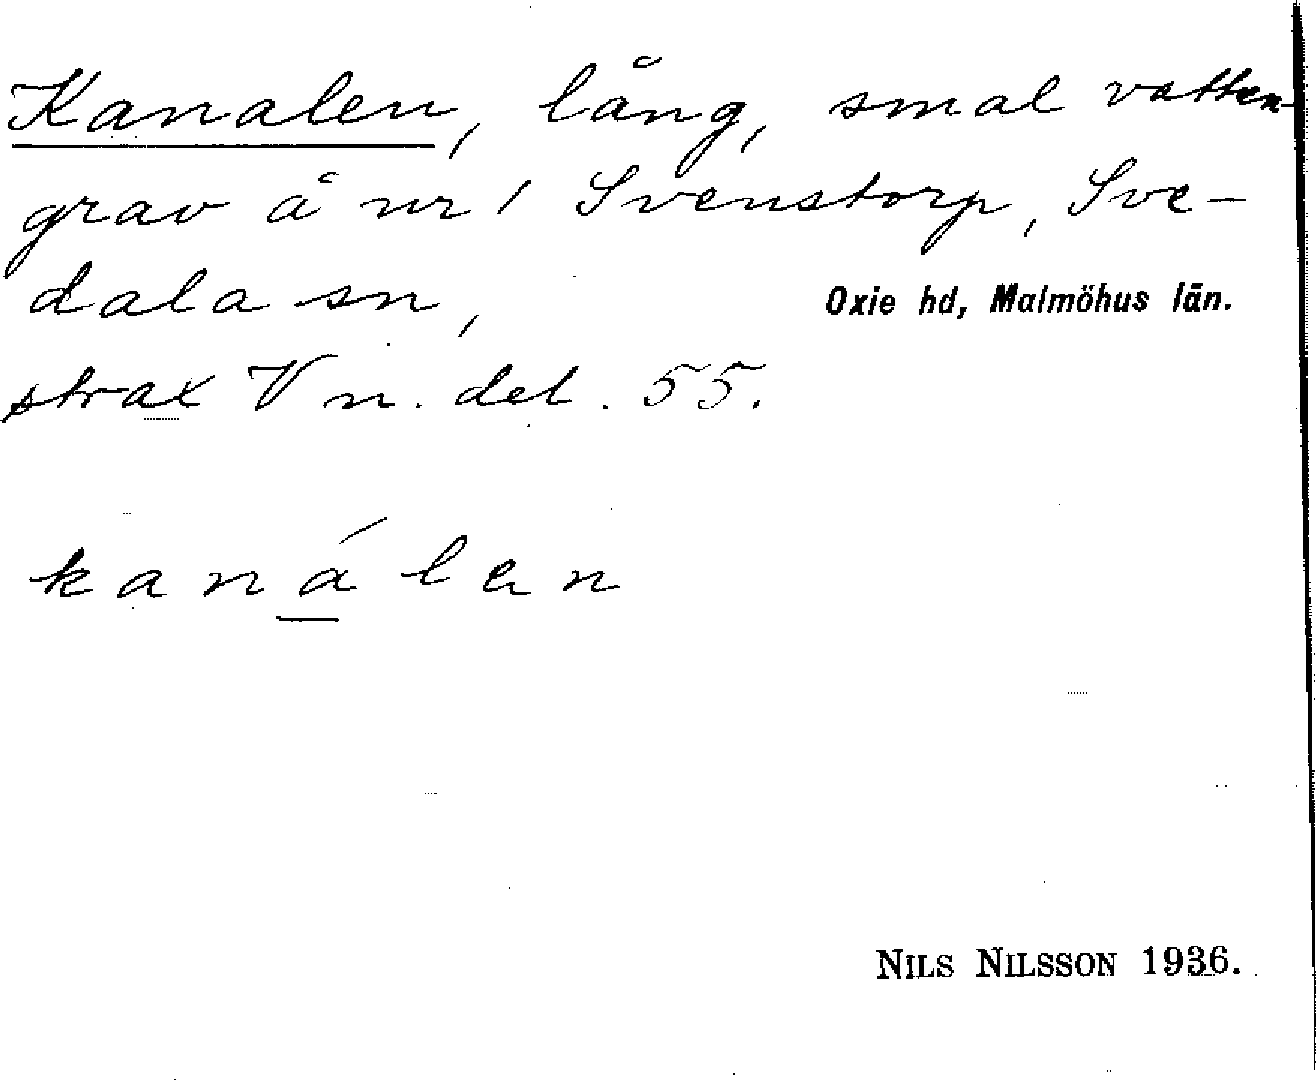 Kanalen, lång, smal vatten-
grav å nr 1 Svenstorp, Sve-
dala sn, Oxie hd, Malmöhus län.
strax V n. det. 55.
kanálen
NILS NILSSON 1936.